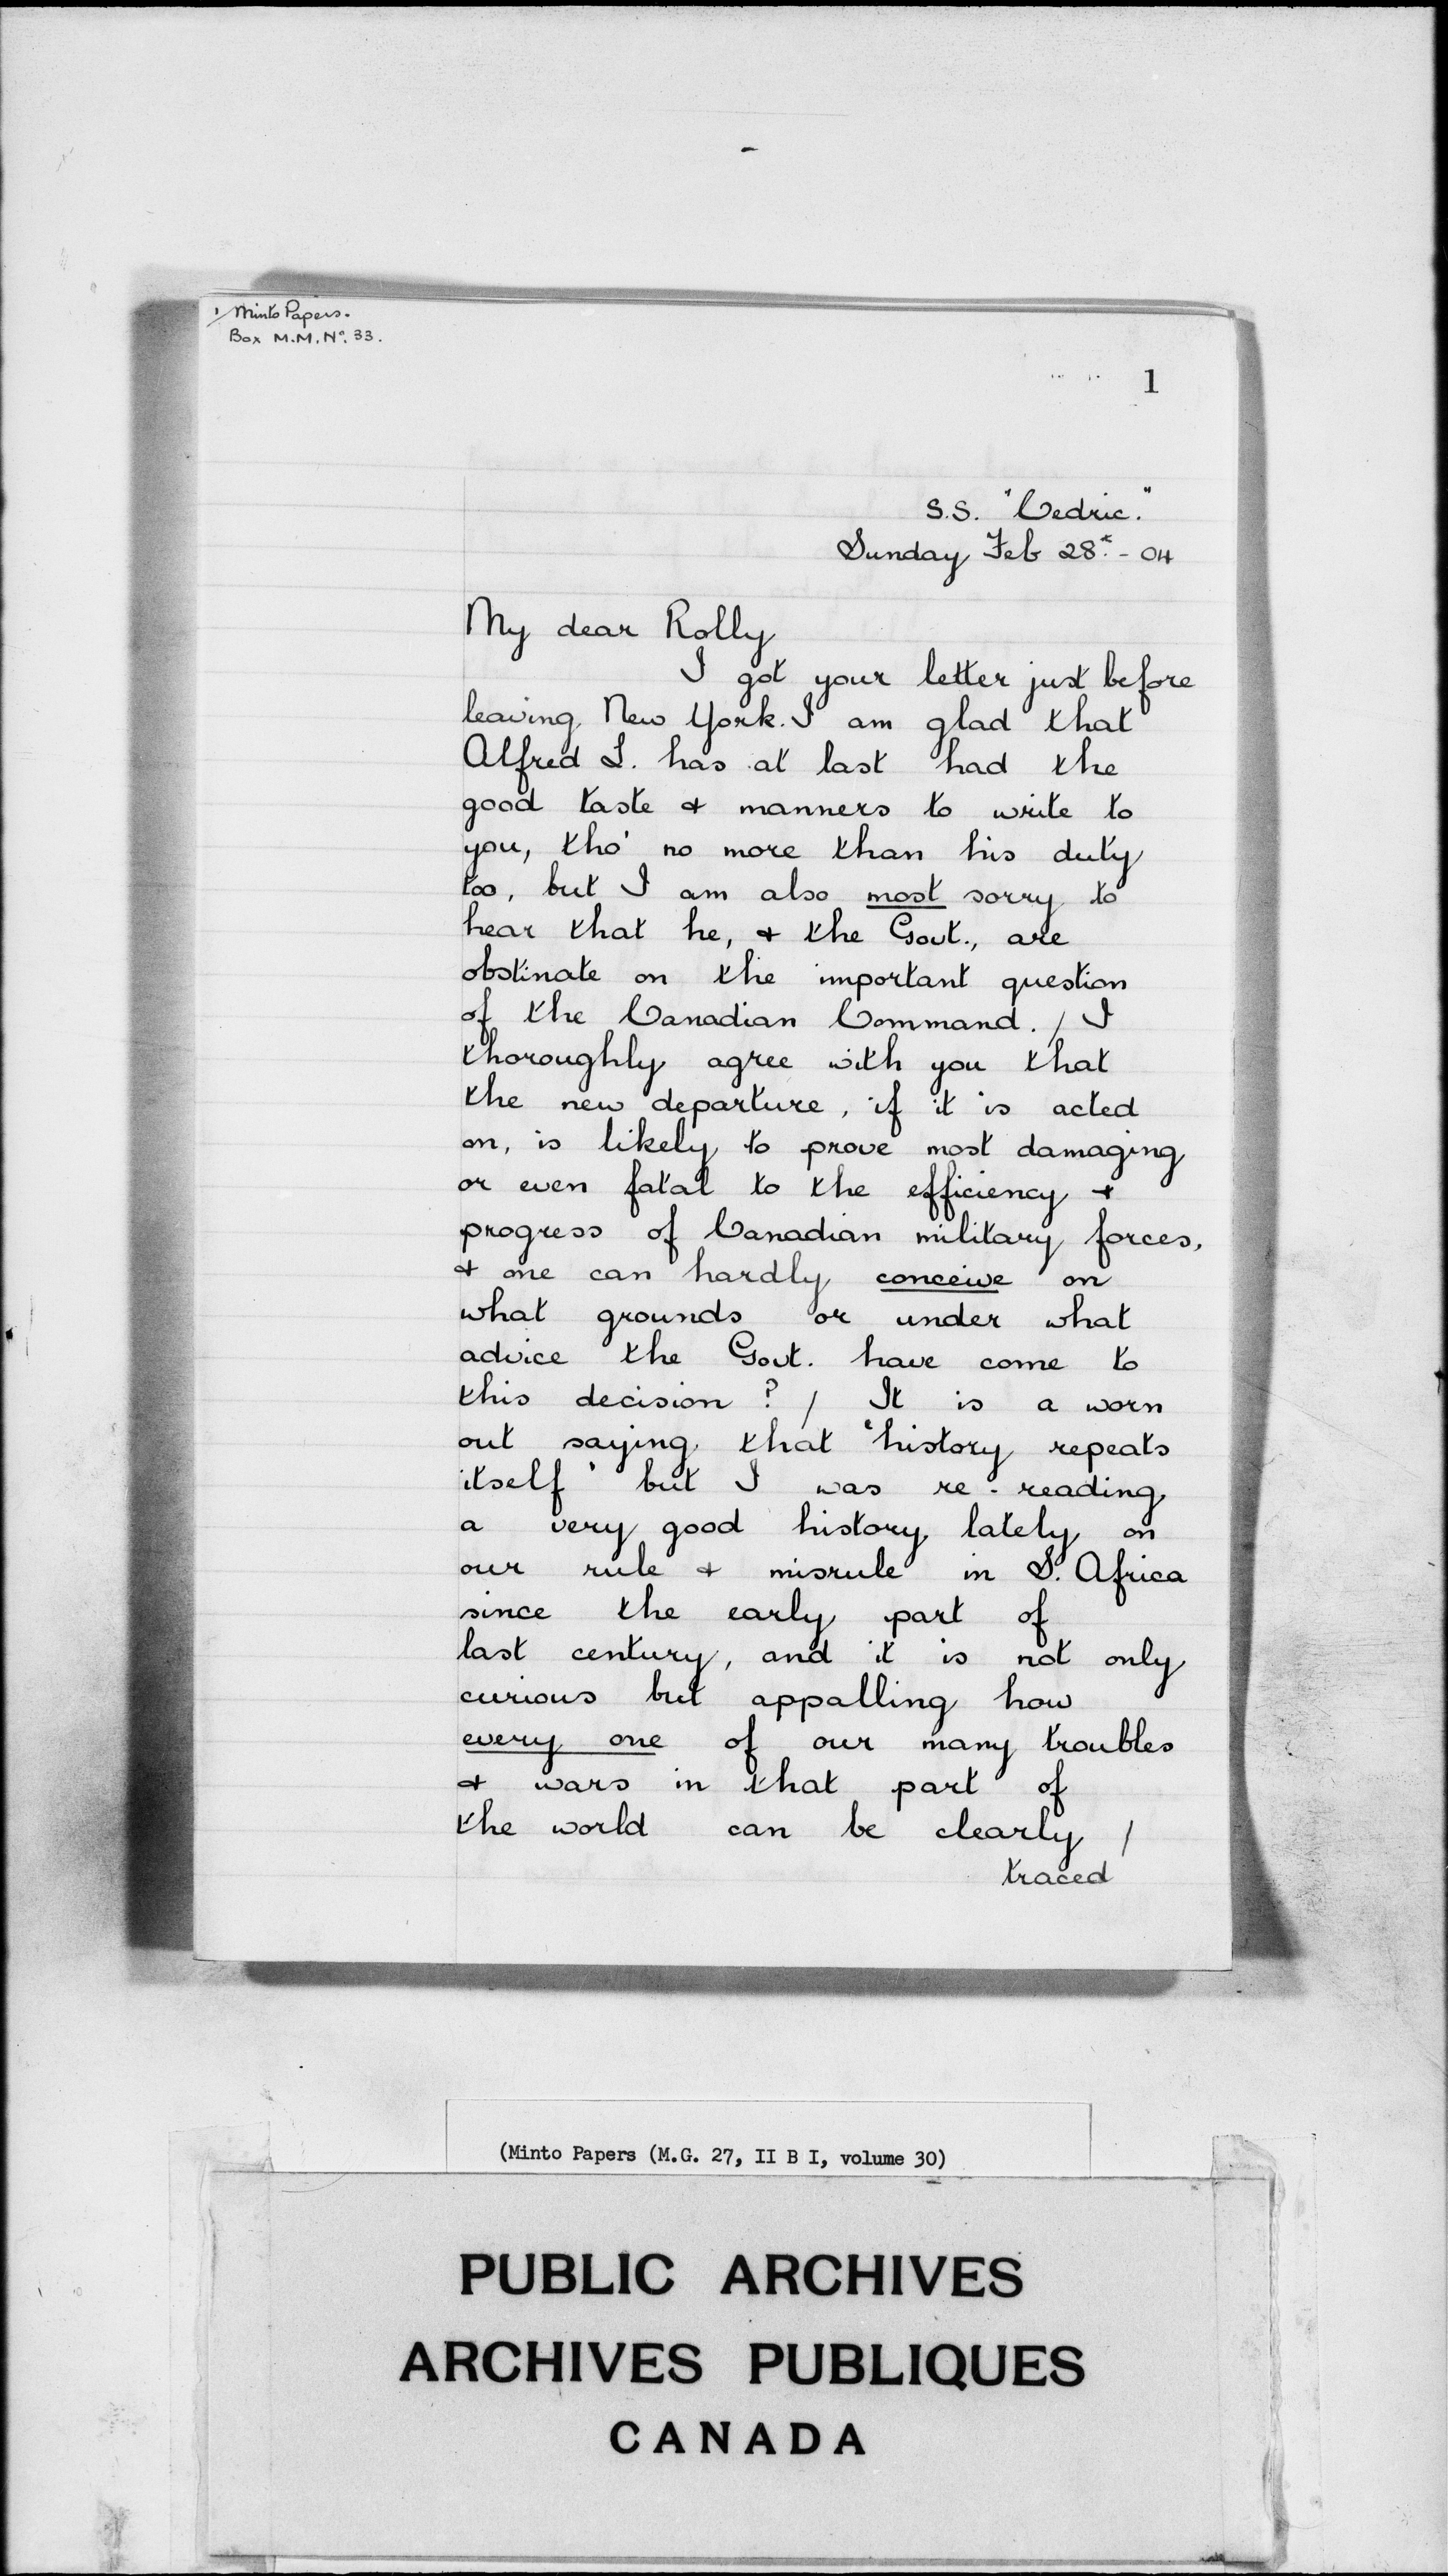 1/ Minto Papers.
Box M.M. Nº. 33.
1
S.S. "Cedric."
Sunday Feb 28th - 04
My dear Rolly
I got your letter just before
leaving New York. I am glad that
Alfred L. has at last had the
good taste & manners to write to
you, tho' no more than his duty
too, but I am also most sorry to
hear that he, & the Govt., are
obstinate on the important question
of the Canadian Command. / I
thoroughly agree with you that
the new departure, if it is acted
on, is likely to prove most damaging
or even fatal to the efficiency &
progress of Canadian military forces,
& one can hardly conceive on
what grounds or under what
advice the Govt. have come to
this decision? / It is a worn
out saying that 'history repeats
itself' but I was re-reading
a very good history lately on
our rule & misrule in S. Africa
since the early part of
last century, and it is not only
curious but appalling how
every one of our many troubles
& wars in that part of
the world can be clearly /
traced
(Minto Papers (M.G. 27, II B I, volume 30)
PUBLIC ARCHIVES
ARCHIVES PUBLIQUES
CANADA